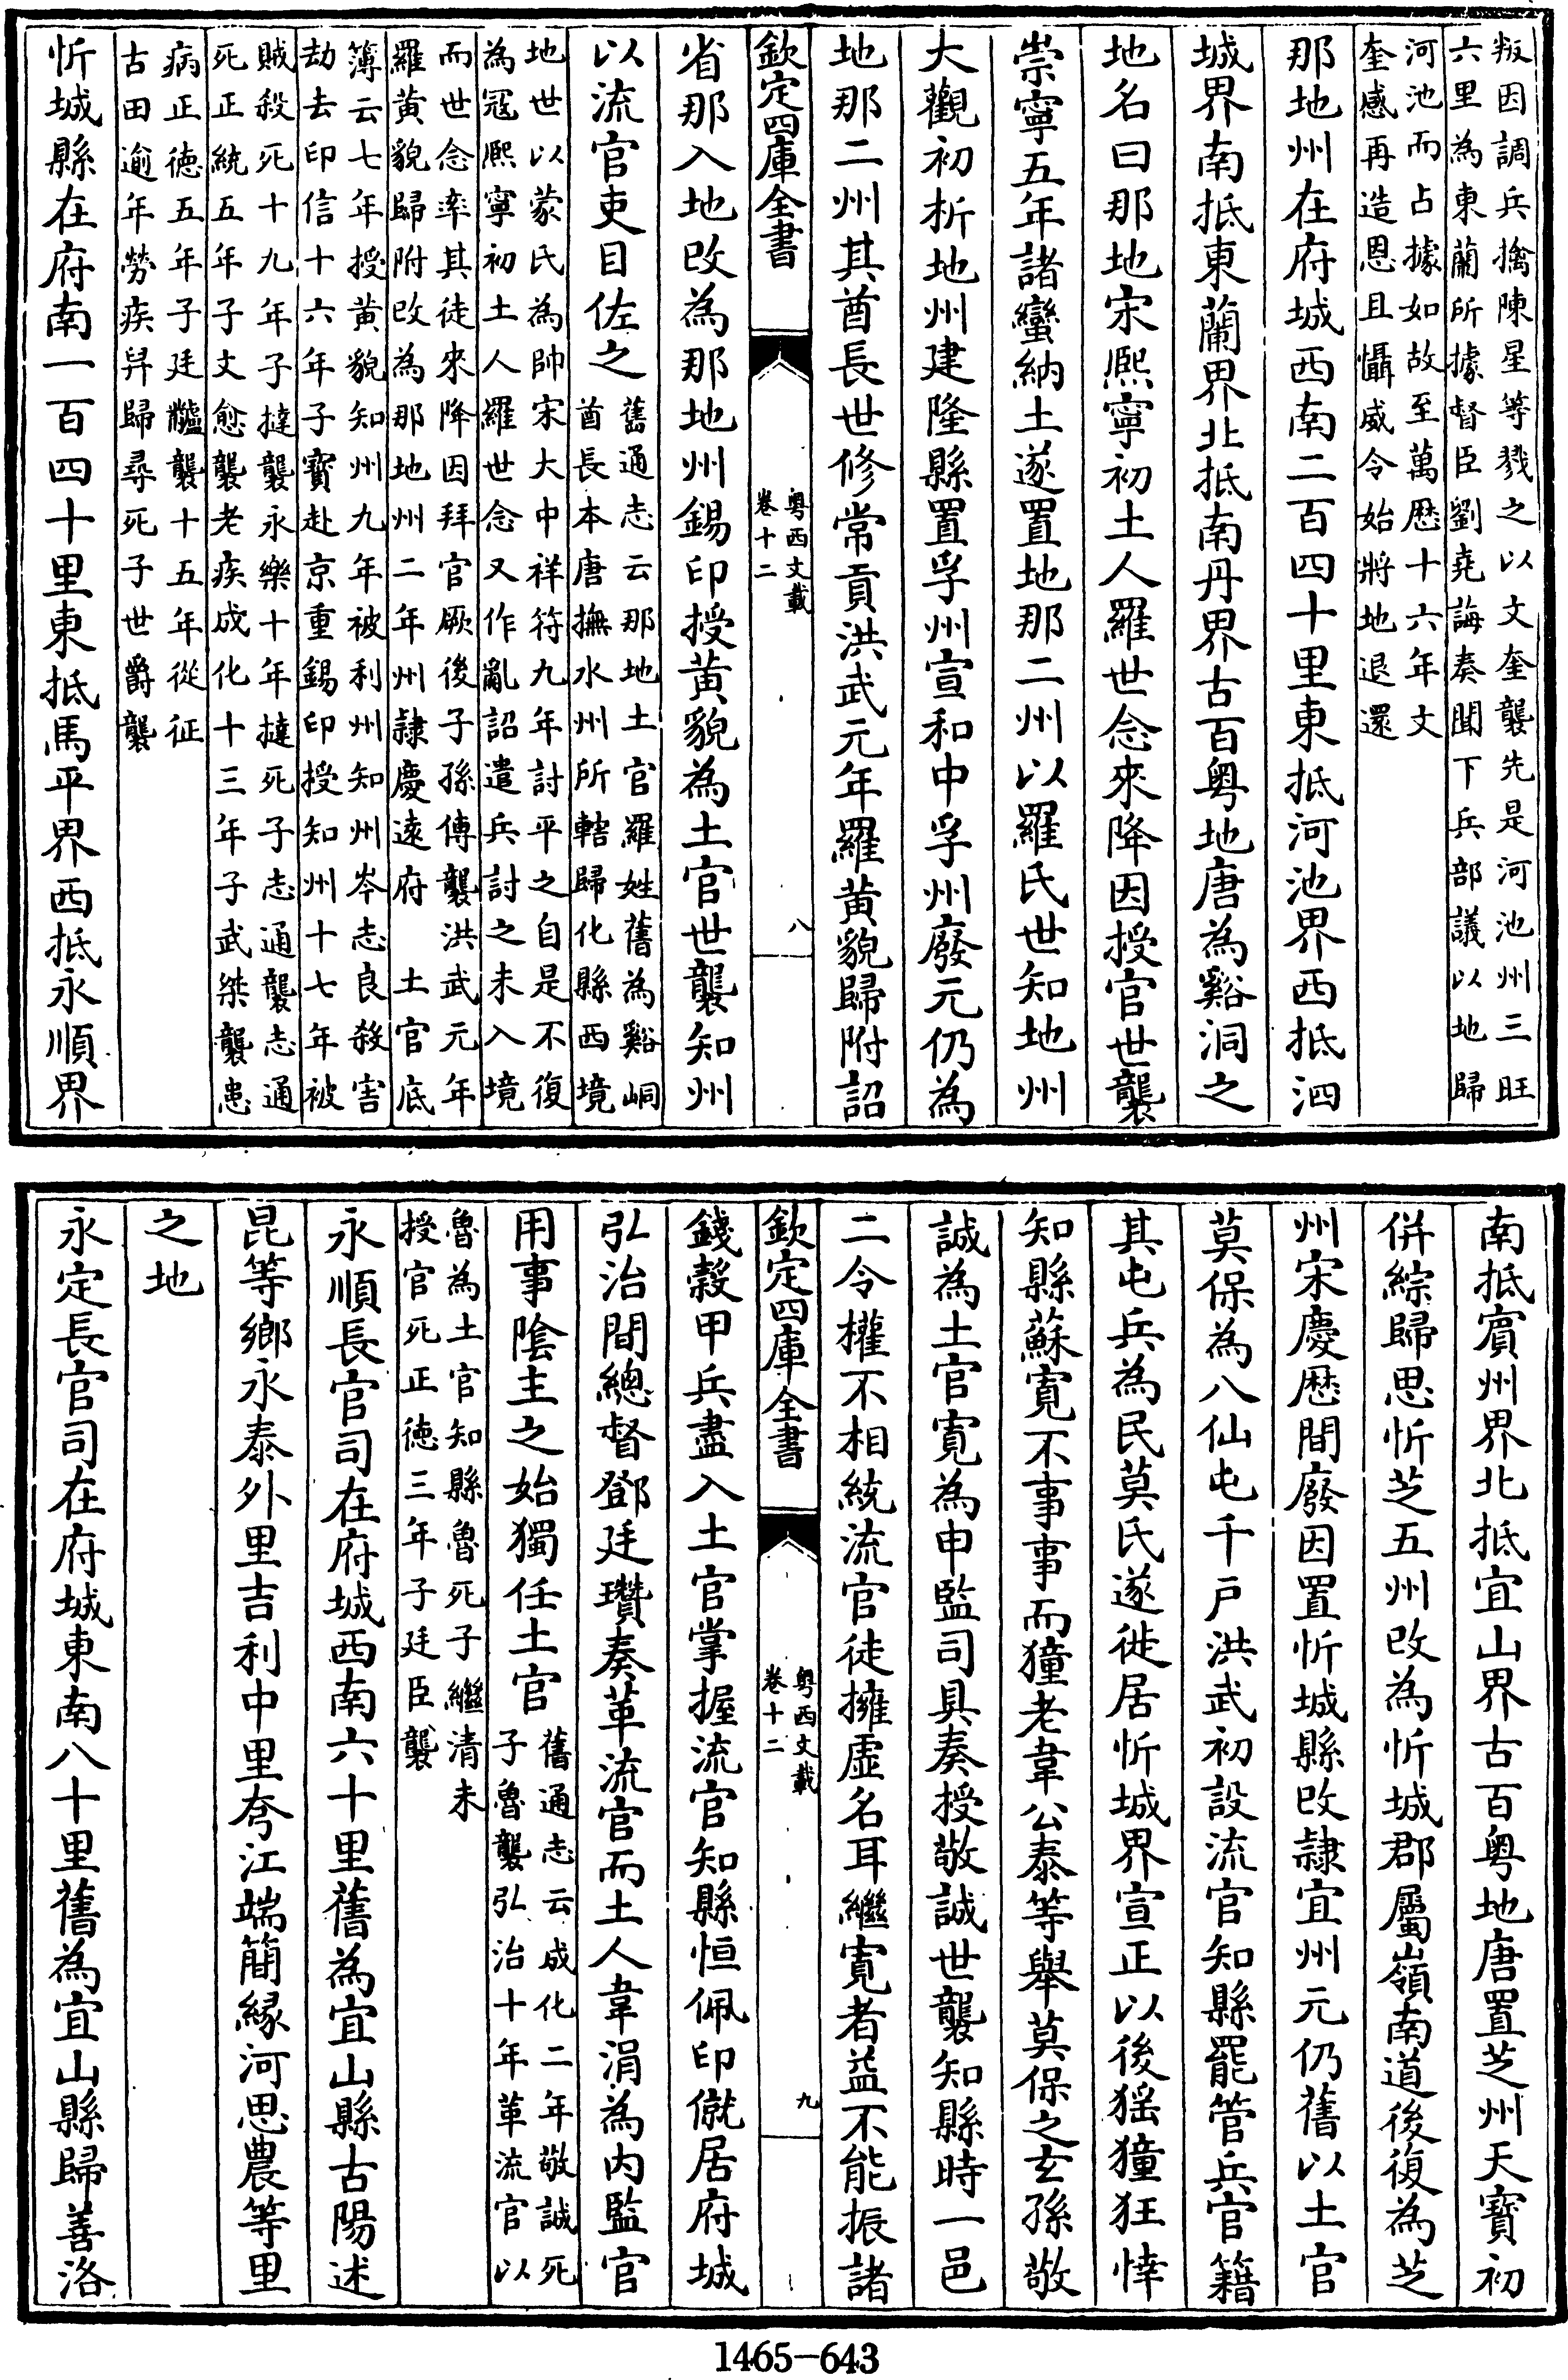 叛因調兵擒陳星等戮之以文奎襲先是河池州三旺
六里為東蘭所據督臣劉堯誨奏聞下兵部議以地歸
河池而占據如故至萬厯十六年文
奎感再造恩且懾威令始將地退還
那地州在府城西南二百四十里東抵河池界西抵泗
城界南抵東蘭界北抵南丹界古百粤地唐為谿洞之
地名曰那地宋熈寧初土人羅世念來降因授官世襲
崇寧五年諸蠻納土遂置地那二州以羅氏世知地州
大觀初析地州建隆縣置孚州宣和中孚州廢元仍為
地那二州其酋長世修常貢洪武元年羅黄貌歸附詔
欽定四庫全書
粤西文載
卷十二
八
省那入地改為那地州錫印授黄貌為土官世襲知州
以流官吏目佐之
舊通志云那地土官羅姓舊為谿峒
酋長本唐撫水州所轄歸化縣西境
地世以蒙氏為帥宋大中祥符九年討平之自是不復
為冦熈寧初土人羅世念又作亂詔遣兵討之未入境
而世念率其徒來降因拜官厥後子孫傳襲洪武元年
羅黄貌歸附改為那地州二年州隷慶逺府 土官底
簿云七年授黄貌知州九年被利州知州岑志良殺害
劫去印信十六年子寳赴京重錫印授知州十七年被
賊殺死十九年子撻襲永樂十年撻死子志通襲志通
死正統五年子文愈襲老疾成化十三年子武桀襲患
病正徳五年子廷㒿襲十五年從征
古田逾年勞疾舁歸尋死子世爵襲
忻城縣在府南一百四十里東抵馬平界西抵永順界
南抵賓州界北抵宜山界古百粤地唐置芝州天寳初
併綜歸思忻芝五州改為忻城郡屬嶺南道後復為芝
州宋慶厯間廢因置忻城縣改隷宜州元仍舊以土官
莫保為八仙屯千户洪武初設流官知縣罷管兵官籍
其屯兵為民莫氏遂徙居忻城界宣正以後猺獞狂悖
知縣蘇寛不事事而獞老韋公泰等舉莫保之玄孫敬
誠為土官寛為申監司具奏授敬誠世襲知縣時一邑
二令權不相統流官徒擁虛名耳繼寛者益不能振諸
欽定四庫全書
粤西文載
卷十二
九
錢榖甲兵盡入土官掌握流官知縣恒佩印僦居府城
弘治間總督鄧廷瓚奏革流官而土人韋涓為内監官
用事隂主之始獨任土官
舊通志云成化二年敬誠死
子魯襲弘治十年革流官以
魯為土官知縣魯死子繼清未
授官死正徳三年子廷臣襲
永順長官司在府城西南六十里舊為宜山縣古陽述
昆等鄉永泰外里吉利中里夸江端簡緣河思農等里
之地
永定長官司在府城東南八十里舊為宜山縣歸善洛
1465-643